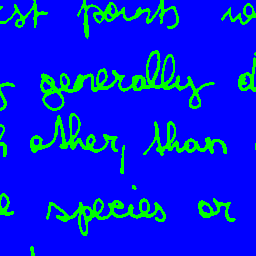 points
generally
other, than
species or